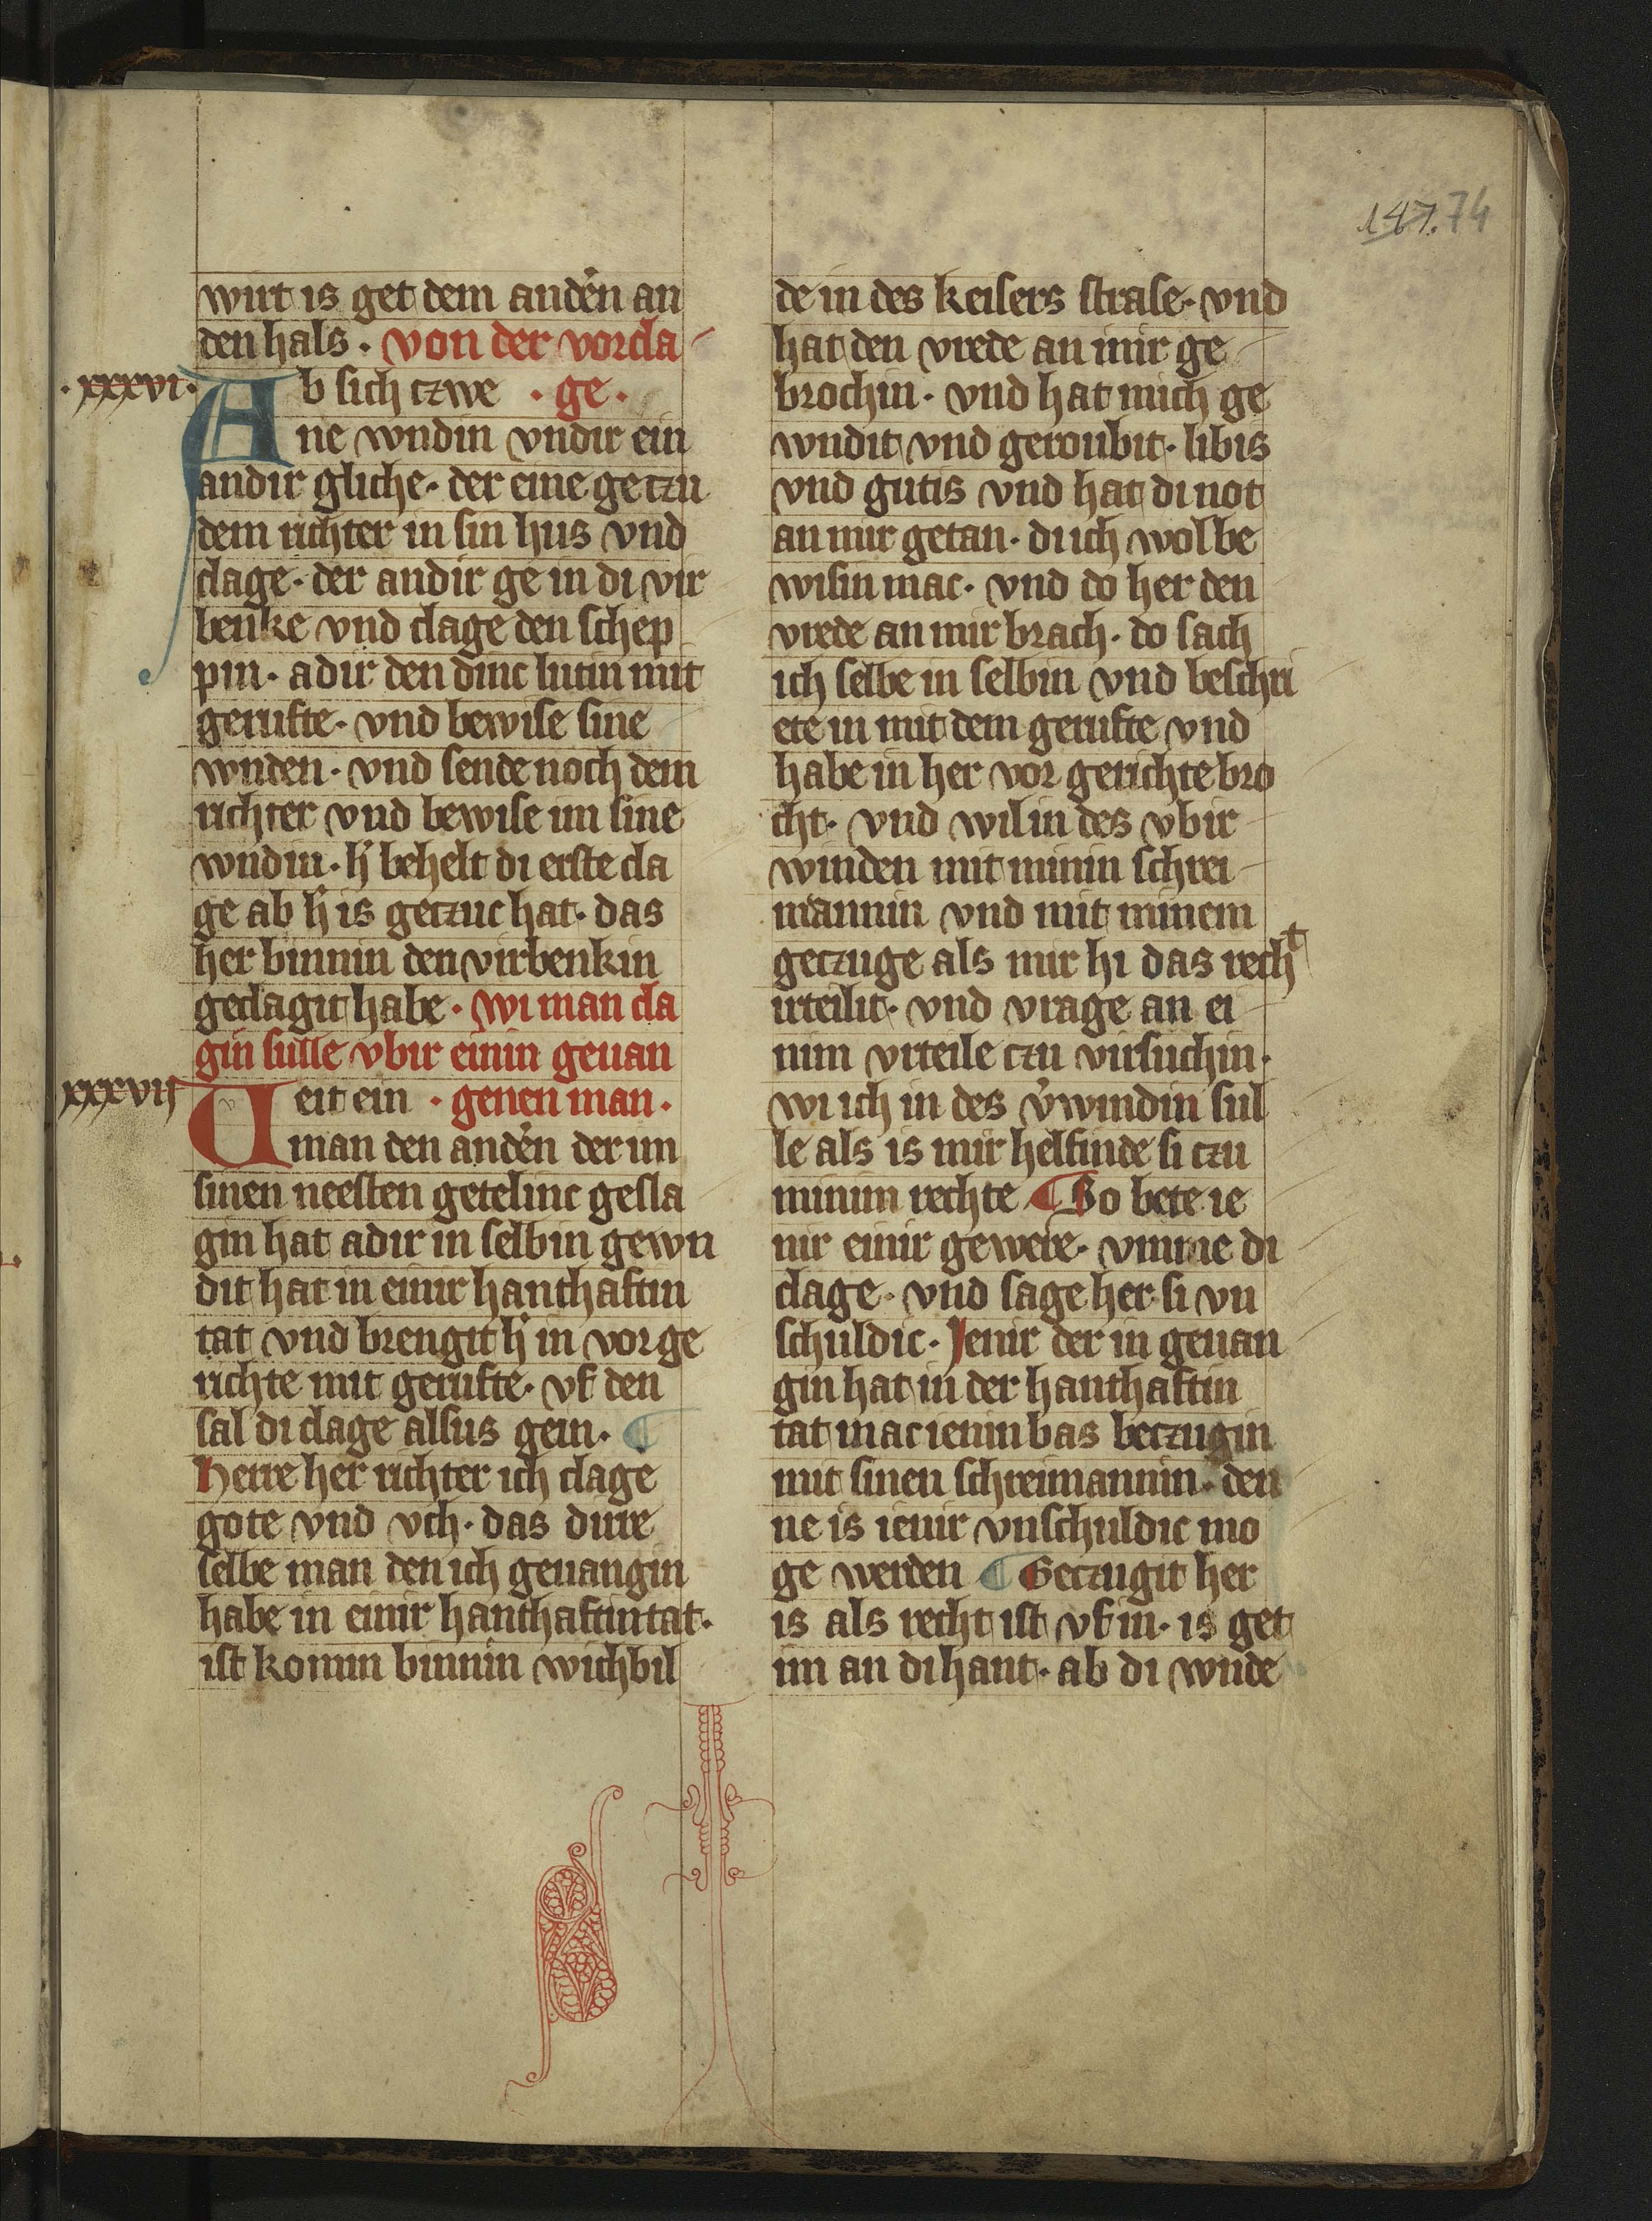 147. 74
wirt is get dem anden̄ an
den hals · von der vorcla
· xxxvi ·
Ab sich czwe · ge ·
ne wndin vndir ein
andir gliche · der eine ge czu
dem richter in sin hus vnd
clage · der andir ge in di vir
benke vnd clage den schep
pin · adir den dinc lutin mit
gerufte · vnd bewise sine
wnden · vnd sende noch dem
richter vnd bewise im sine
wndin · h̄ behelt di erste cla
ge ab h̄ is geczuc hat · das
her binnin den virbenkin
geclagit habe · wi man cla
gin sulle vbir einin geuan
xxxvii
Veit ein · genen man ·
man den anden̄ der im
sinen neesten getelinc gesla
gin hat adir in selbin gewn
dit hat in einir hanthaftin
tat vnd brengit h̄ in vor ge
richte mit gerufte · vf den
sal di clage alsus gein · ¶
Herre her richter ich clage
gote vnd vch · das dirre
selbe man den ich geuangin
habe in einir hanthaftin tat ·
ist komin binnin wichbil
de in des keisers strase · vnd
hat den vrede an mir ge
brochin · vnd hat mich ge
wndit vnd geroubit · libis
vnd gutis vnd hat di not
an mir getan · di ich wol be
wisin mac · vnd do her den
vrede an mir brach · do sach
ich selbe in selbin vnd beschri
ete in mit dem gerufte vnd
habe in her vor gerichte bro
cht · vnd wil in des vbir
winden mit minin schrei
mannin vnd mit minem
geczuge als mir hi das recht
irteilit · vnd vrage an ei
nim vrteile czu virsuchin ·
wi ich in des v̄windin sul
le als is mir helfinde si czu
minim rechte ¶ So bete ie
nir einir gewere · vmme di
clage · vnd sage her si vn
schuldic · Jenir der in geuan
gin hat in der hanthaftin
tat mac ienin bas beczugin
mit sinen schreimannin · den
ne is ienir vnschuldic mo
ge werden ¶ Geczugit her
is als recht ist vf in · is get
im an di hant · ab di wnde